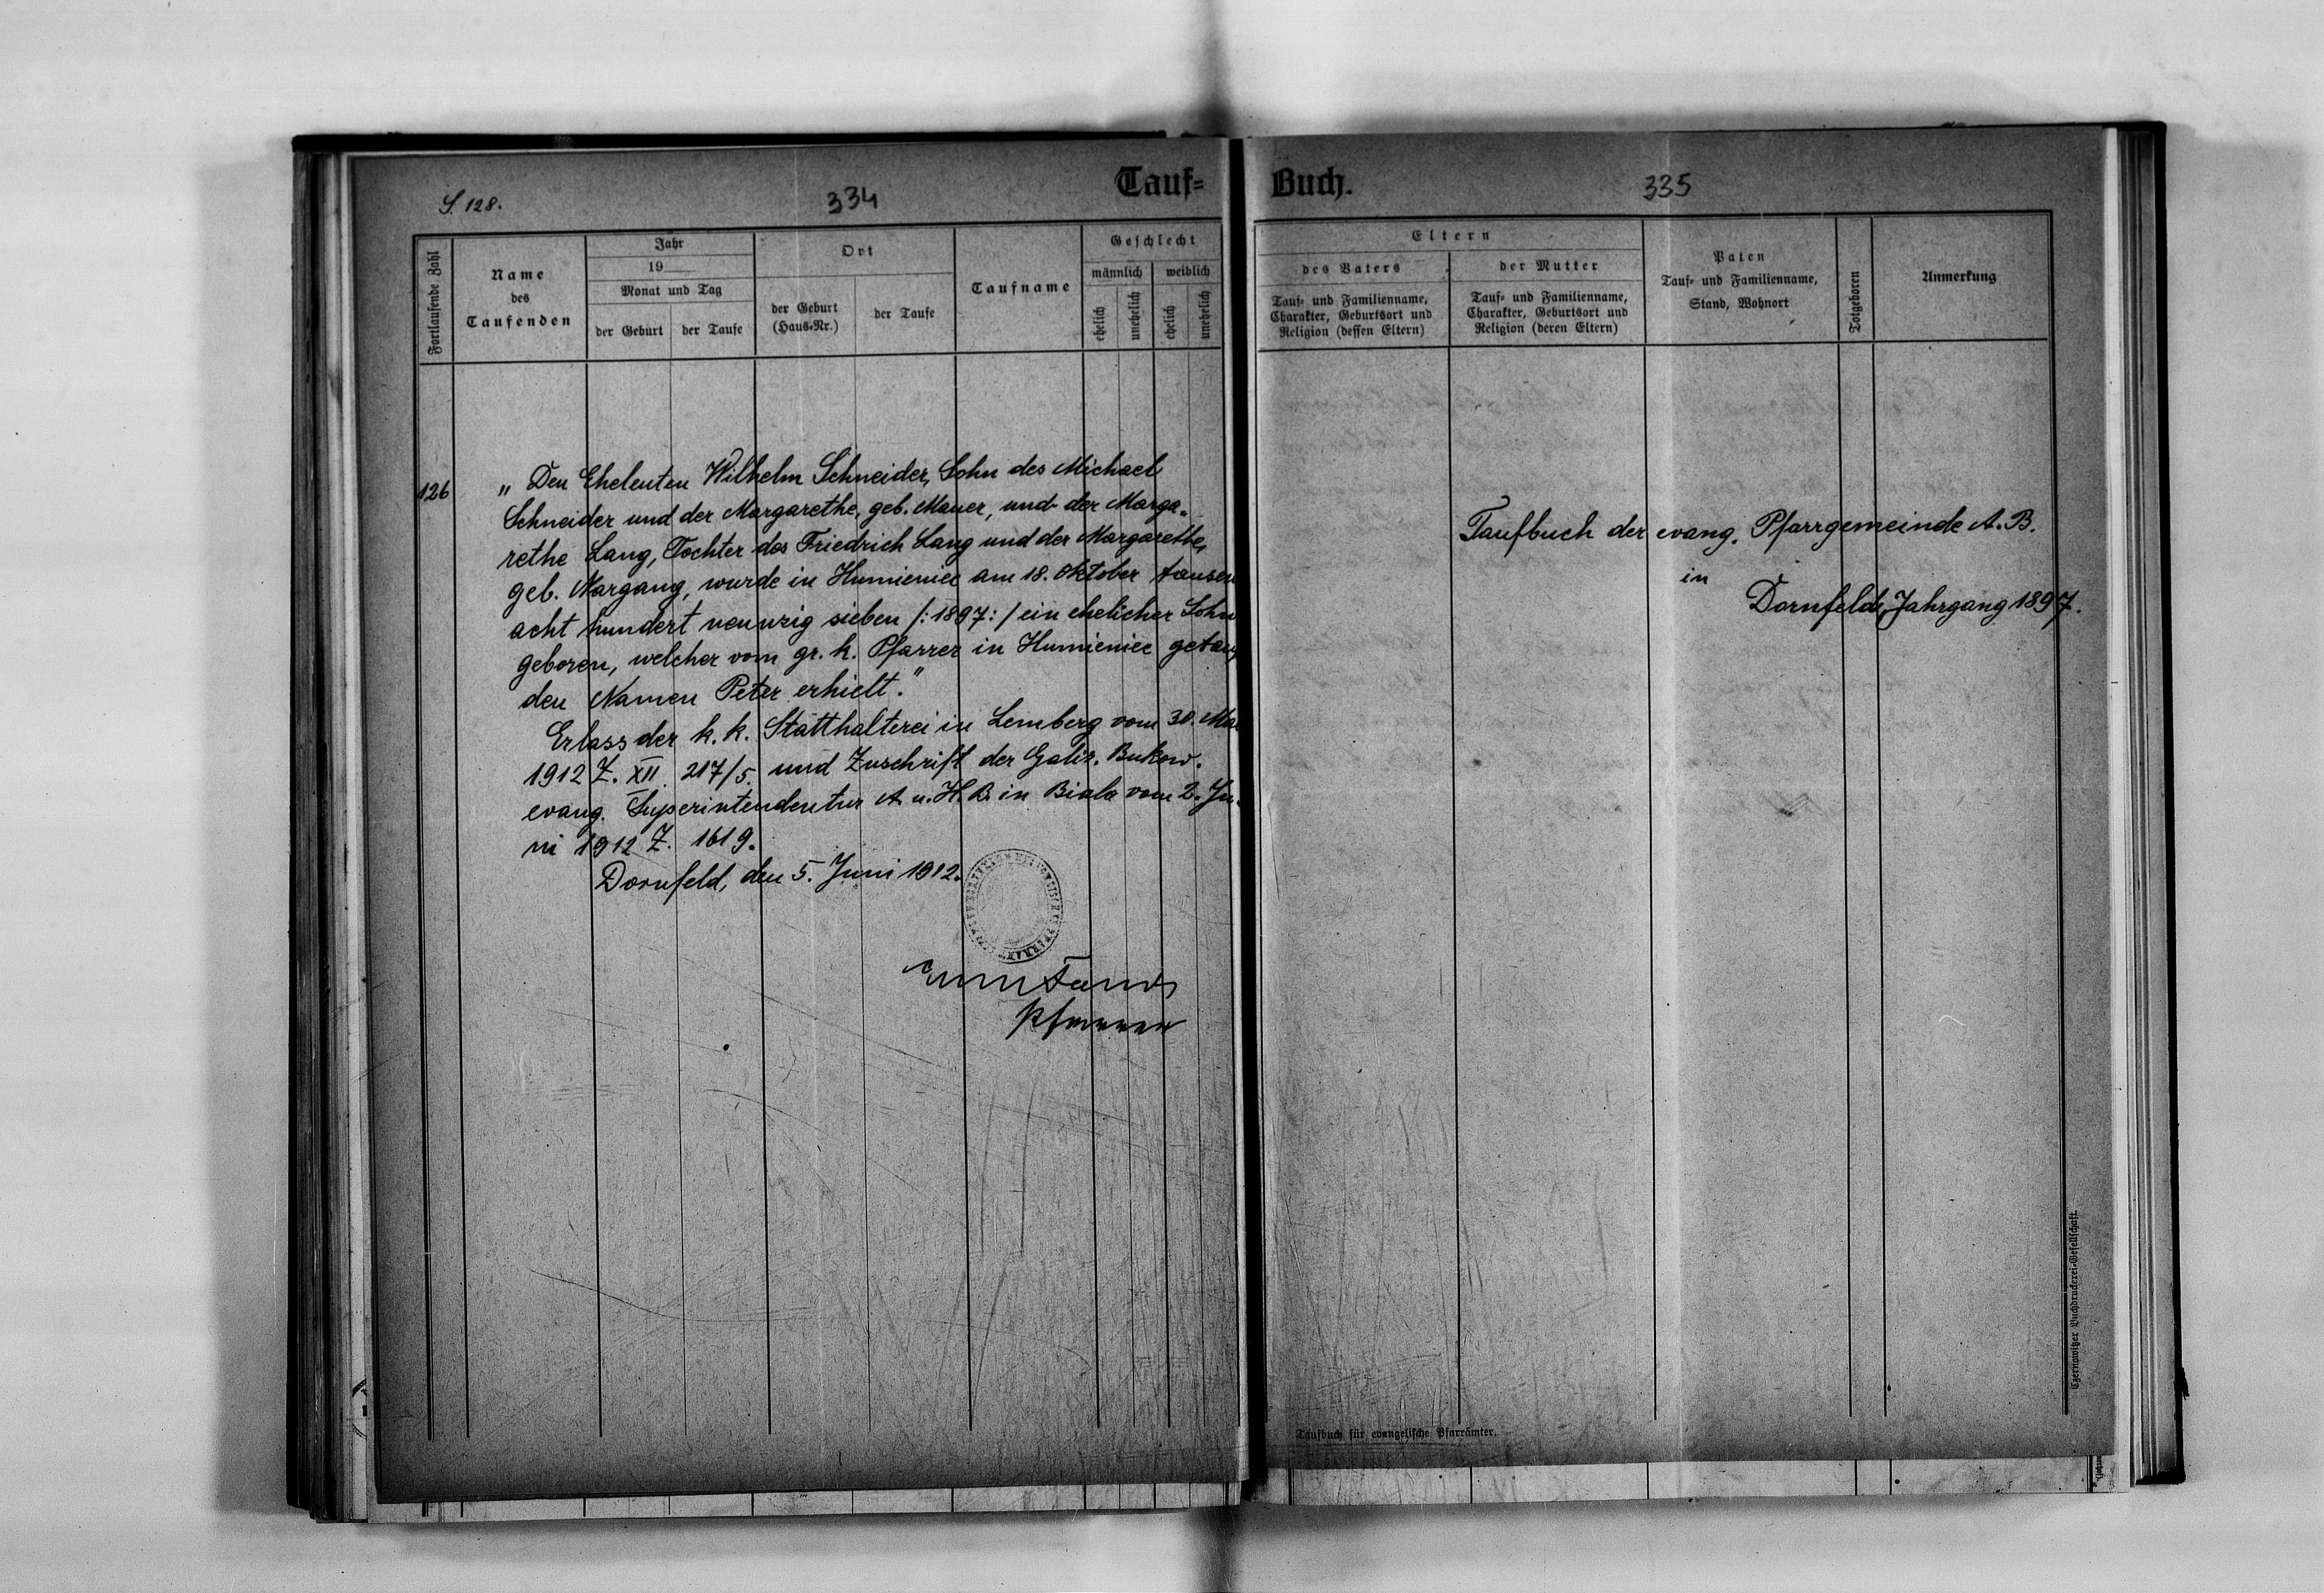 S. 128.
334
Tauf=
Fortlaufende Zahl
Name
des
Taufenden
Jahr
19
Monat und Tag
der Geburt
der Taufe
Ort
der Geburt
(Haus-Nr.)
der Taufe
Taufname
Geschlecht
männlich
weiblich
ehelich
unehelich
ehelich
unehelich
126
„Den Eheleuten Wilhelm Schneider, Sohn des Michael
Schneider und der Margarethe, geb. Mauer, und der Marga-
rethe Lang, Tochter des Friedrich Lang und der Margarethe,
geb. Wargang, wurde in Humieniec am 18. Oktober tausen
acht hundert neunzig sieben /:1897:/ ein ehelicher Sohn
geboren, welcher vom gr. k. Pfarrer in Humieniec getauf
den Namen Peter erhielt."
Erlass der k. k. Statthalterei in Lemberg vom 30. Mai
1912 Z. XII 217/5. und Zuschrift der Galiz. Bukow.
evang. Superintendentur A. u. H. B. in Biala vom 2. Ju-
ni 1912 Z. 1619.
Dornfeld, den 5. Juni 1912.
Pfarrer
Buch.
335
Eltern
des Vaters
Tauf= und Familienname,
Charakter, Geburtsort und
Religion (dessen Eltern)
der Mutter
Tauf= und Familienname,
Charakter, Geburtsort und
Religion (deren Eltern)
Paten
Tauf= und Familienname,
Stand, Wohnort
Totgeboren
Anmerkung
Taufbuch der evang. Pfarrgemeinde A. B.
in
Dornfeld, Jahrgang 1897.
Taufbuch für evangelische Pfarrämter.
Czernowitzer Buchdruckerei-Gesellschaft.